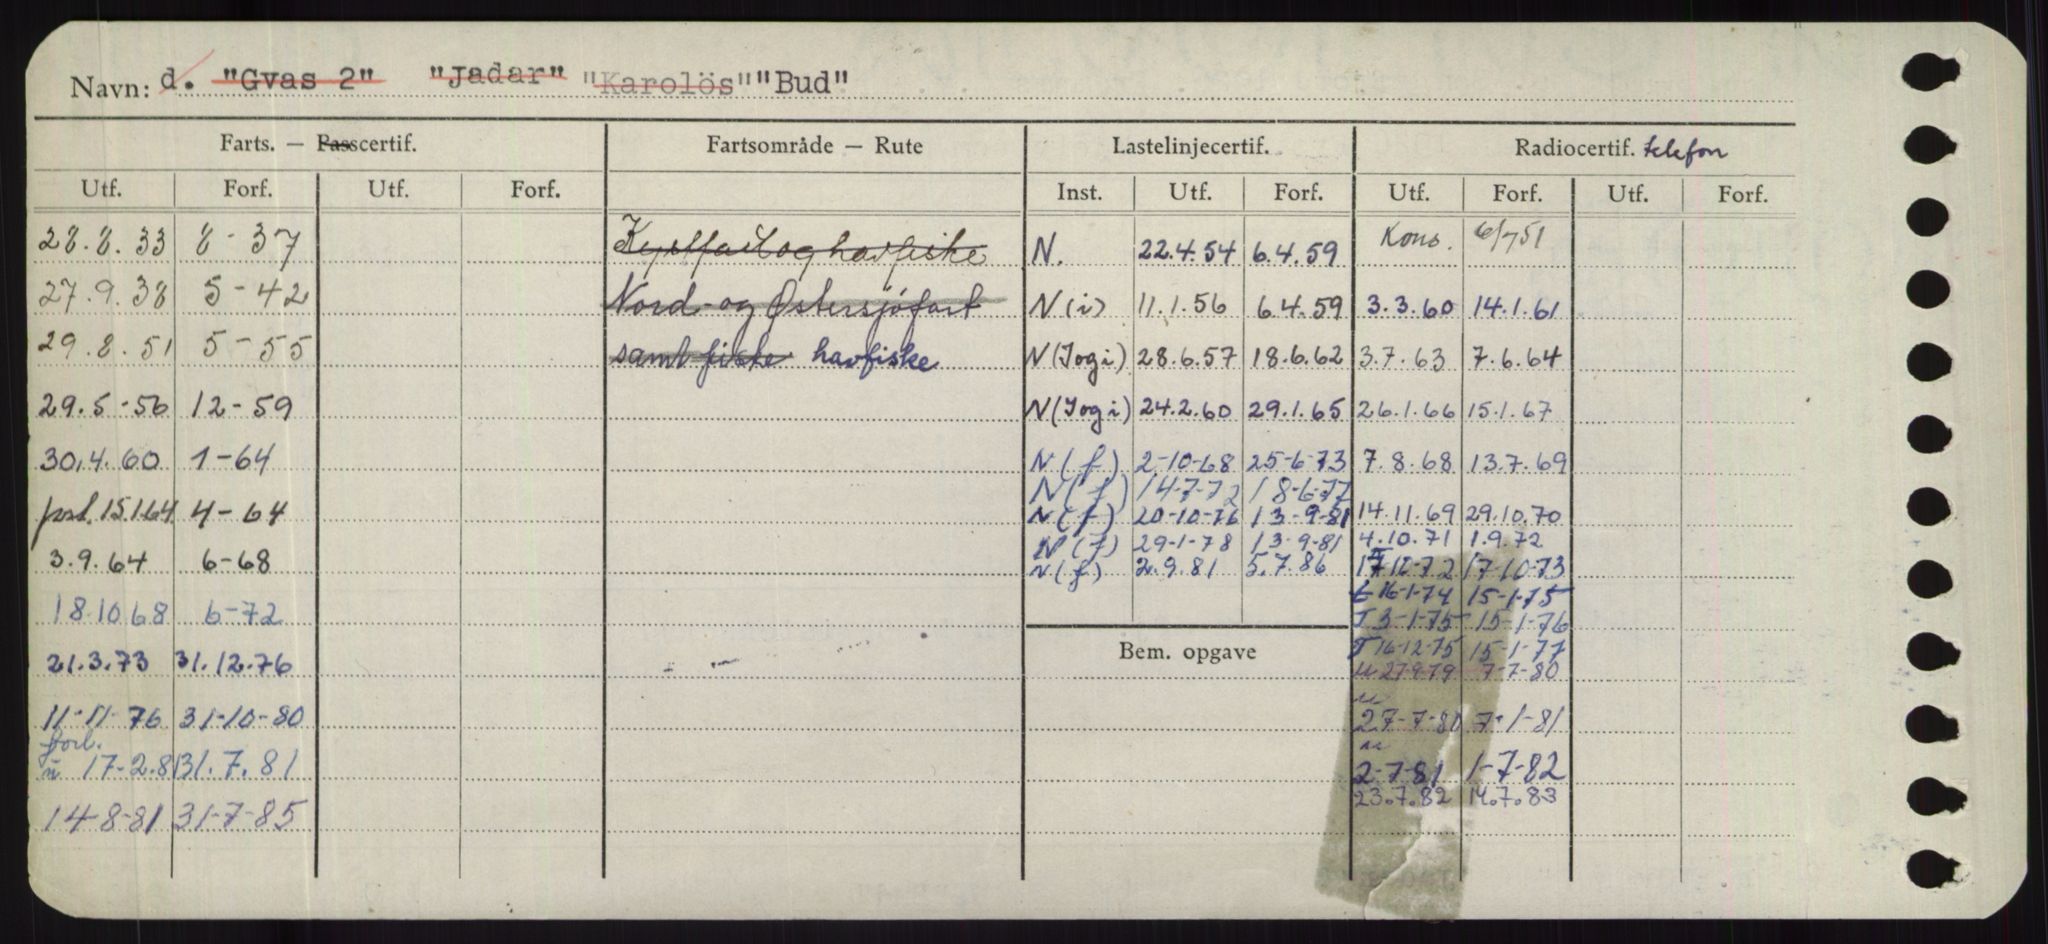 Navn: d. "Gvas 2" "Jadar" "Karolös" "Bud"
Farts. — Passcertif. Fartsområde — Rute Lastelinjecertif. Radiocertif. telefon
Utf. Forf. Utf. Forf. Inst. Utf. Forf. Utf. Forf. Utf. Forf.
28.8.33 8-37 Kystfart og havfiske N. 22.4.54 6.4.59 Kons. 6/7 51
27.9.38 5-42 Nord- og Østersjøfart N (i) 11.1.56 6.4.59 3.3.60 14.1.61
29.8.51 5-55 samt fiske havfiske N (J og i) 28.6.57 18.6.62 3.7.63 7.6.64
29.5-56 12-59 N (J og i) 24.2.60 29.1.65 26.1.66 15.1.67
30.4.60 1-64 N (f) 2-10-68 25-6-73 7.8.68 13.7.69
N (f) 14-7-72 18-6-77
15.1.64 4-64 N (f) 20-10-76 13-9-81 14.11.69 29.10.70
N (f) 29-1-78 13-9-81 4.10.71 1.9.72
3.9.64 6-68 N (f) 2.9.81 5.7.86 17-10-73
16-1-74 15-1-75
18.10 68 6-72 T 3-1-75 15-1-76
21.3.73 31.12.76 Bem. opgave T 16-12-75 15-1-77
u 27-9-79 7-7-80
u
11-11-76 31-10-80 27-7-80 7-1-81
forl. u
u 17-2.81 31.7.81 2-7-81 1-7-82
23.7.82 14.7.83
14-8-81 31-7-85